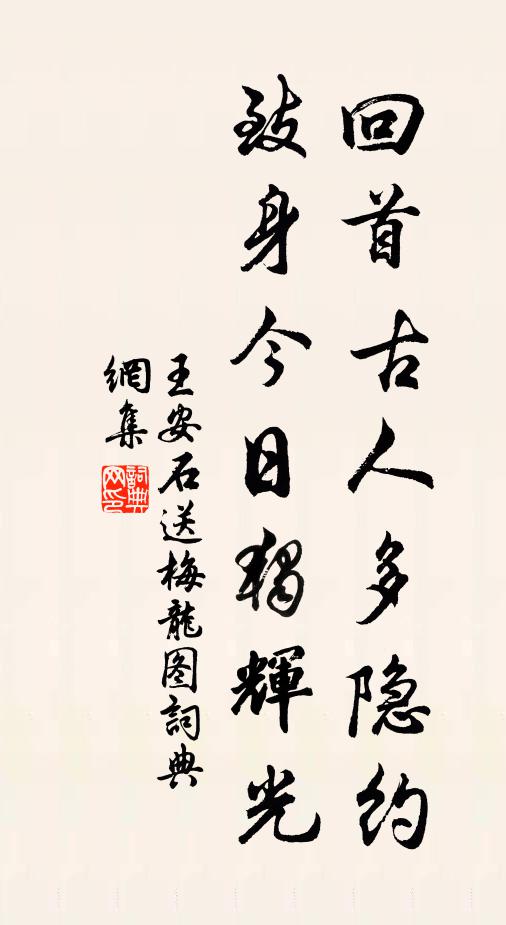 回首古人多隐约
致身今日独輝光
王安石送梅龍图詞典
網集
詞典網印